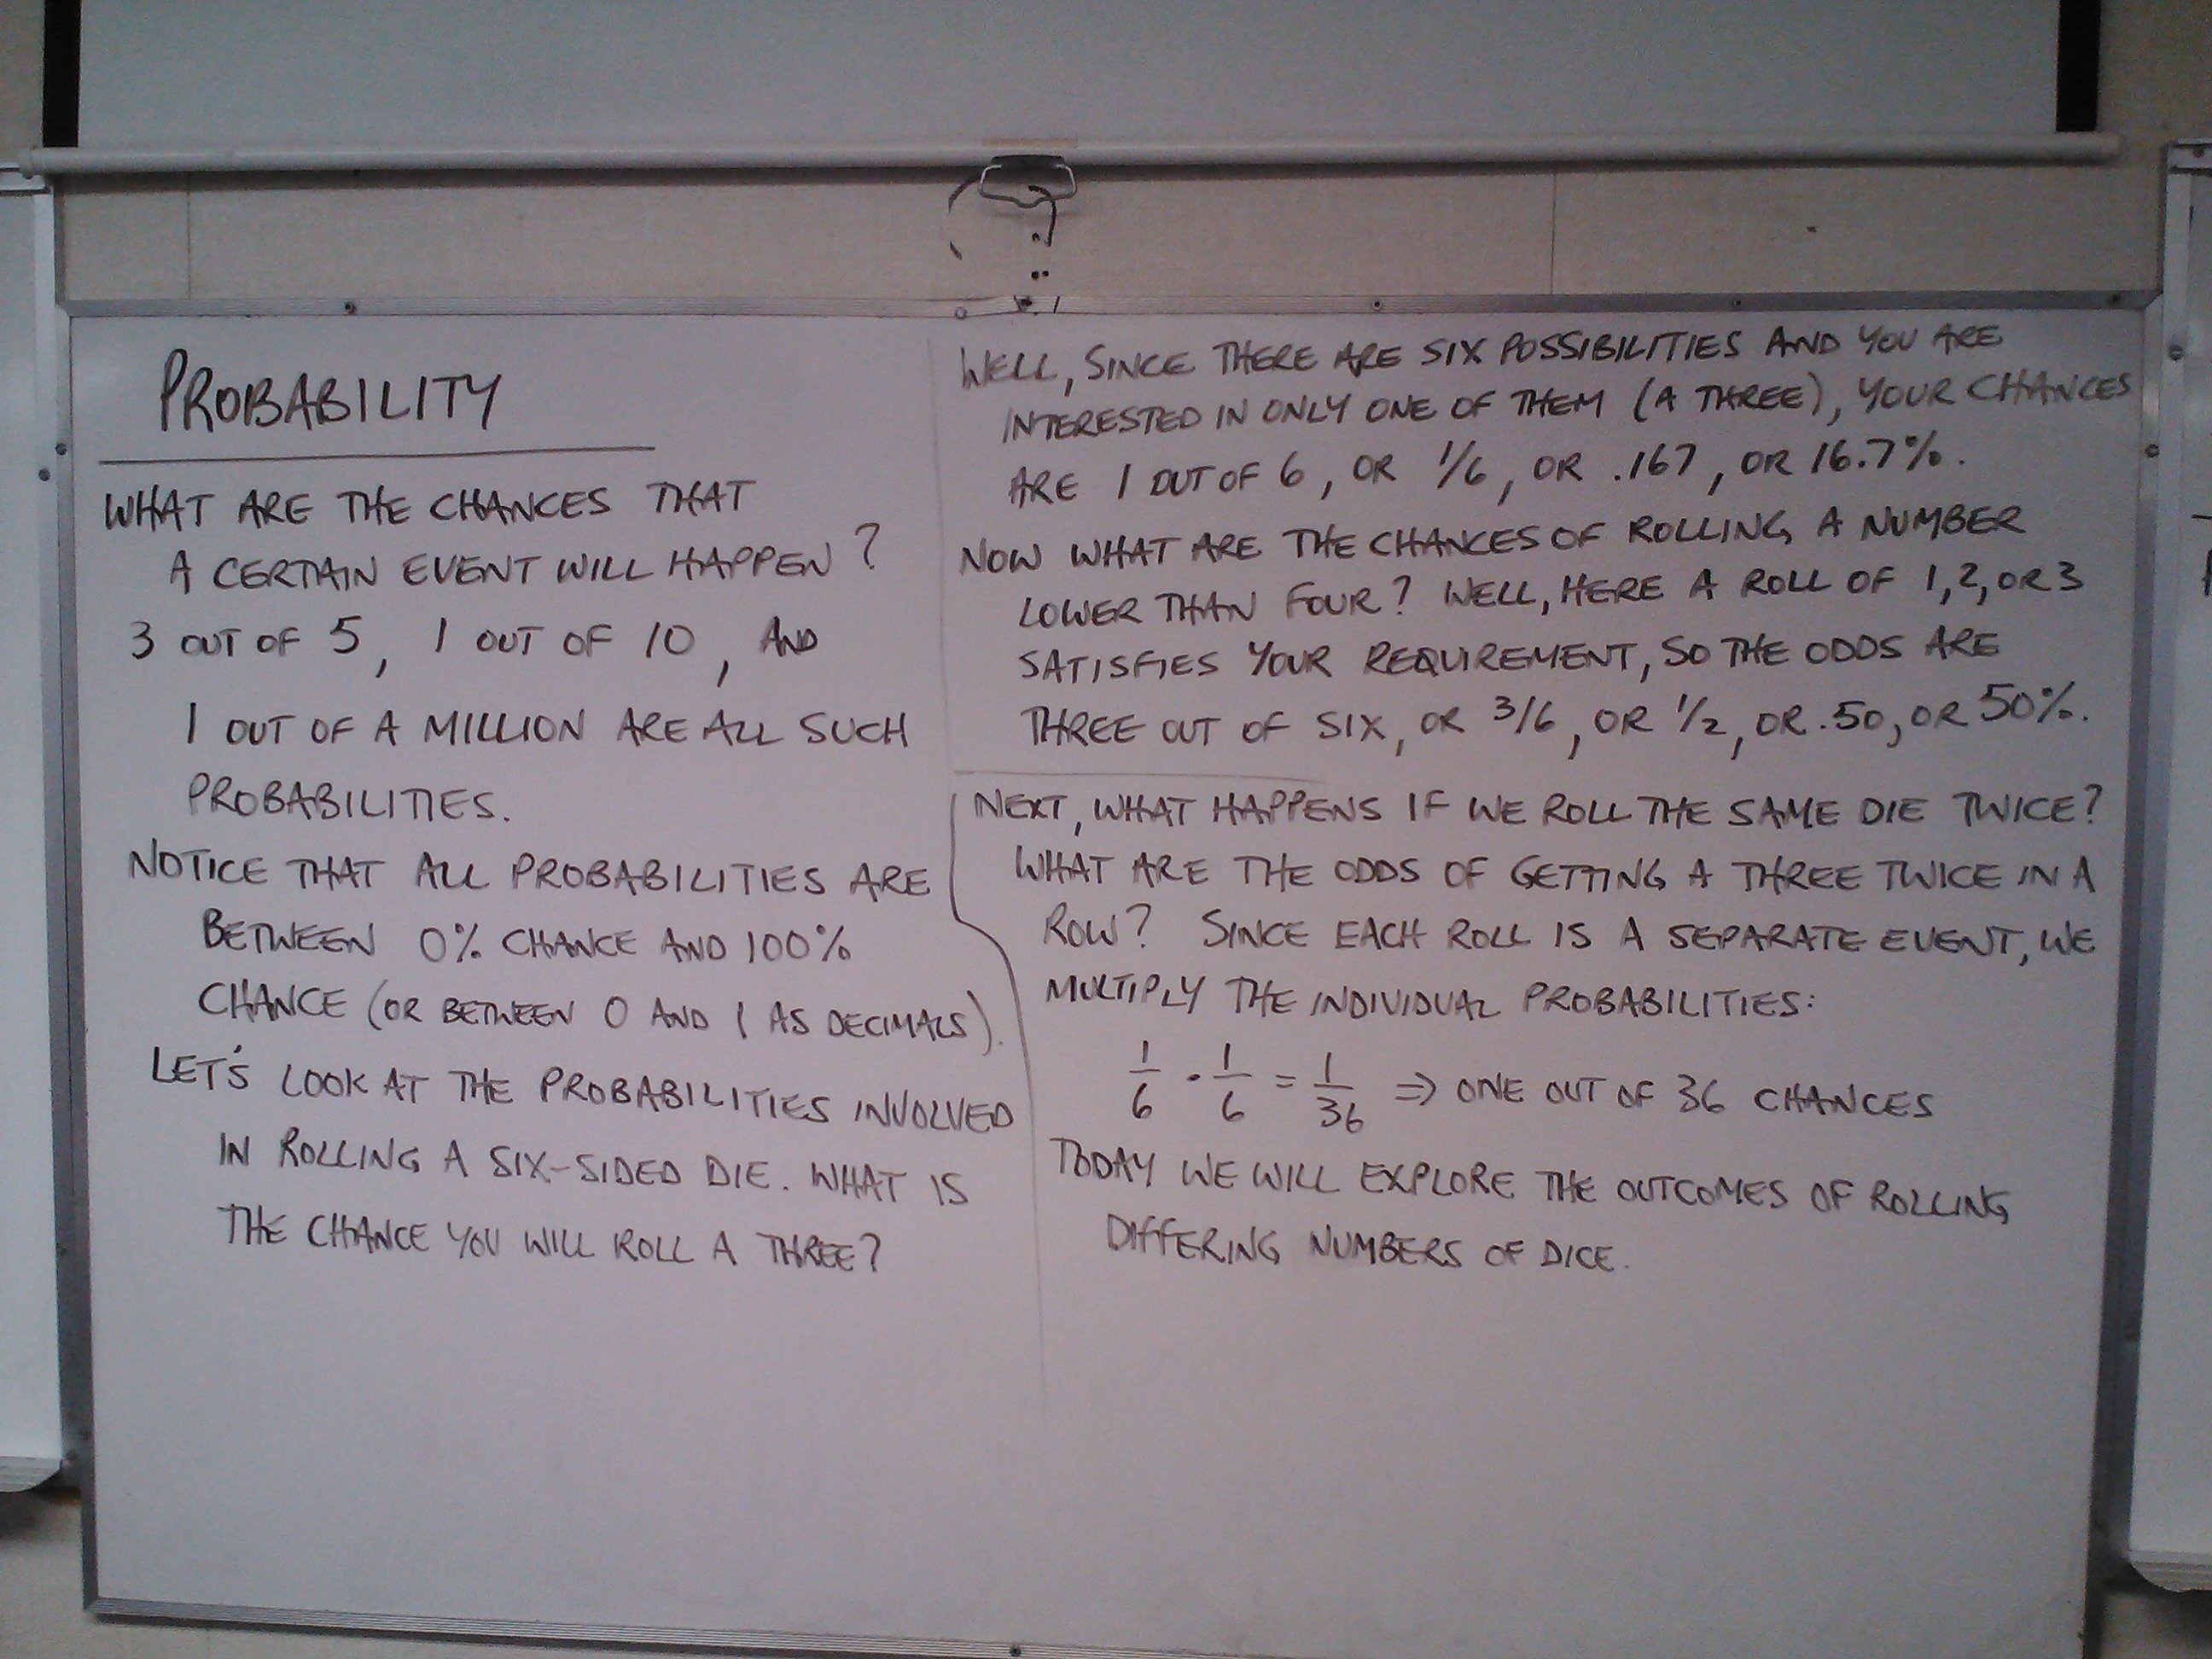 PROBABILITY
WHAT ARE THE CHANCES THAT
A CERTAIN EVENT WILL HAPPEN?
3 OUT OF 5, 1 OUT OF 10, AND
1 OUT OF A MILLION ARE ALL SUCH
PROBABILITIES.
NOTICE THAT ALL PROBABILITIES ARE
BETWEEN 0% CHANCE AND 100%
CHANCE (OR BETWEEN 0 AND 1 AS DECIMALS).
LET'S LOOK AT THE PROBABILITIES INVOLVED
IN ROLLING A SIX-SIDED DIE. WHAT IS
THE CHANCE YOU WILL ROLL A THREE?
WELL, SINCE THERE ARE SIX POSSIBILITIES AND YOU ARE
INTERESTED IN ONLY ONE OF THEM (A THREE), YOUR CHANCES
ARE 1 OUT OF 6, OR 1/6, OR .167, OR 16.7%.
NOW WHAT ARE THE CHANCES OF ROLLING A NUMBER
LOWER THAN FOUR? WELL, HERE A ROLL OF 1, 2, OR 3
SATISFIES YOUR REQUIREMENT, SO THE ODDS ARE
THREE OUT OF SIX, OR 3/6, OR 1/2, OR .50, OR 50%.
NEXT, WHAT HAPPENS IF WE ROLL THE SAME DIE TWICE?
WHAT ARE THE ODDS OF GETTING A THREE TWICE IN A
ROW? SINCE EACH ROLL IS A SEPARATE EVENT, WE
MULTIPLY THE INDIVIDUAL PROBABILITIES:
1/6 · 1/6 = 1/36 ⇒ ONE OUT OF 36 CHANCES
TODAY WE WILL EXPLORE THE OUTCOMES OF ROLLING
DIFFERING NUMBERS OF DICE.